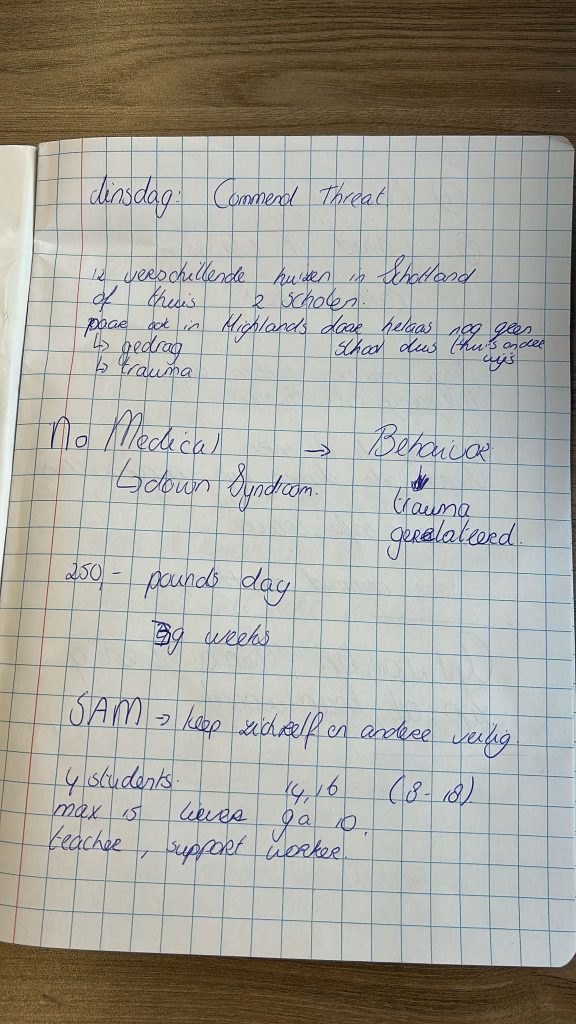 dinsdag: Commend Threat
12 verschillende huizen in Schotland
of thuis 2 scholen.
paar ook in Highlands daar helaas nog geen
↳ gedrag school dus thuis onder
↳ trauma wijs
No Medical → Behaivor
↳ down Syndroom. ↓
trauma
gerelateerd.
250,- pounds day
39 weeks
SAM → keep zichzelf en andere veilig.
4 students. 14, 16 (8-18)
max 15 liever 10.
teacher, support worker.